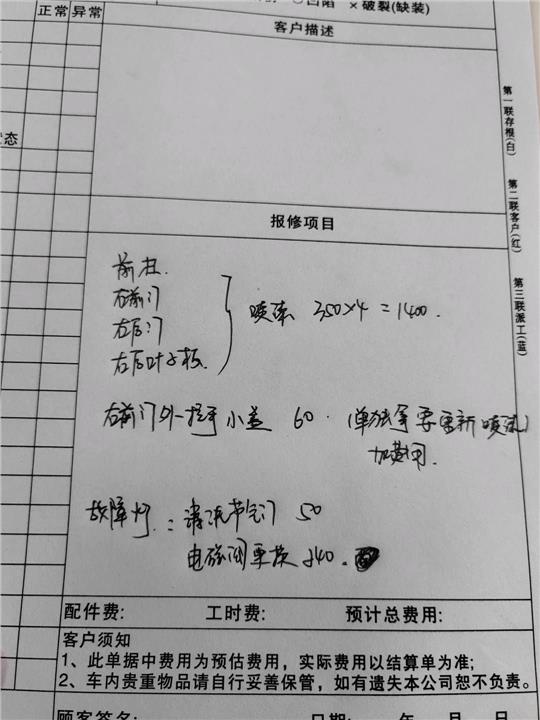 凹陷 × 破裂(缺装)
正常 异常
客户描述
态
第一联存根(白)
第二联客户(红)
第三联派工(蓝)
报修项目
前杠
右前门
右后门
右后叶子板
喷漆 350×4=1400.
右前门外拉手小盖 60. (单独 要更新喷漆)
加费用.
故障灯: 清洗节气门 50
电磁阀更换 240.
配件费: 工时费: 预计总费用:
客户须知
1、此单据中费用为预估费用，实际费用以结算单为准;
2、车内贵重物品请自行妥善保管，如有遗失本公司恕不负责。
顾客签名: 日期: 年 月